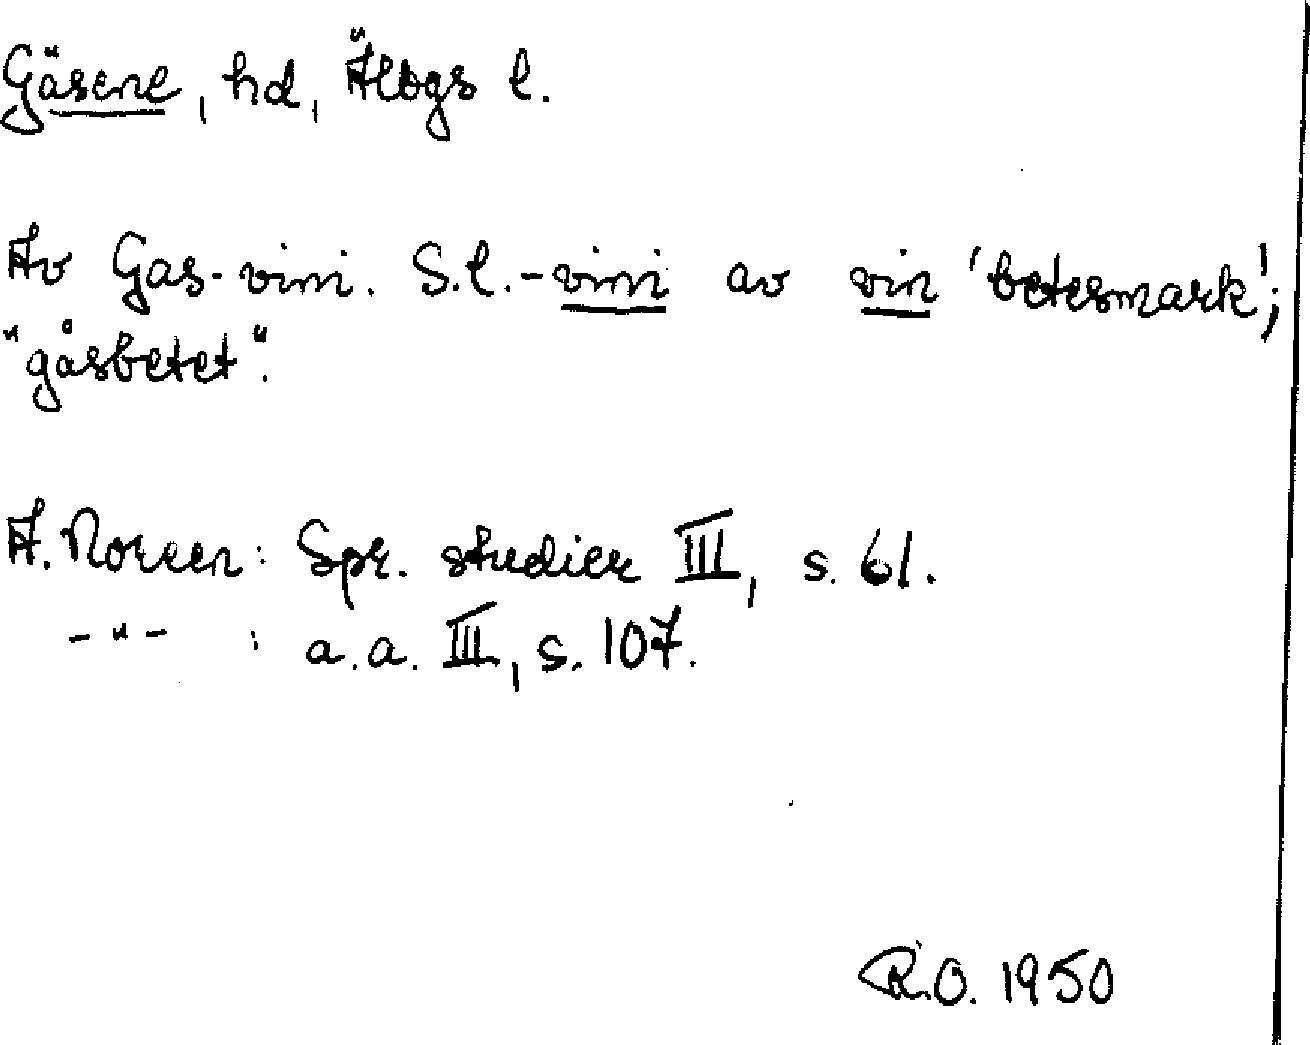 Gäsene, hd, Älvbgs l.
Av Gas-vini. S.l.-vini av vin 'betesmark';
"gåsbetet".
A. Noreen: Spr. studier III, s. 61.
-"- : a.a. III, s. 107.
R.O. 1950